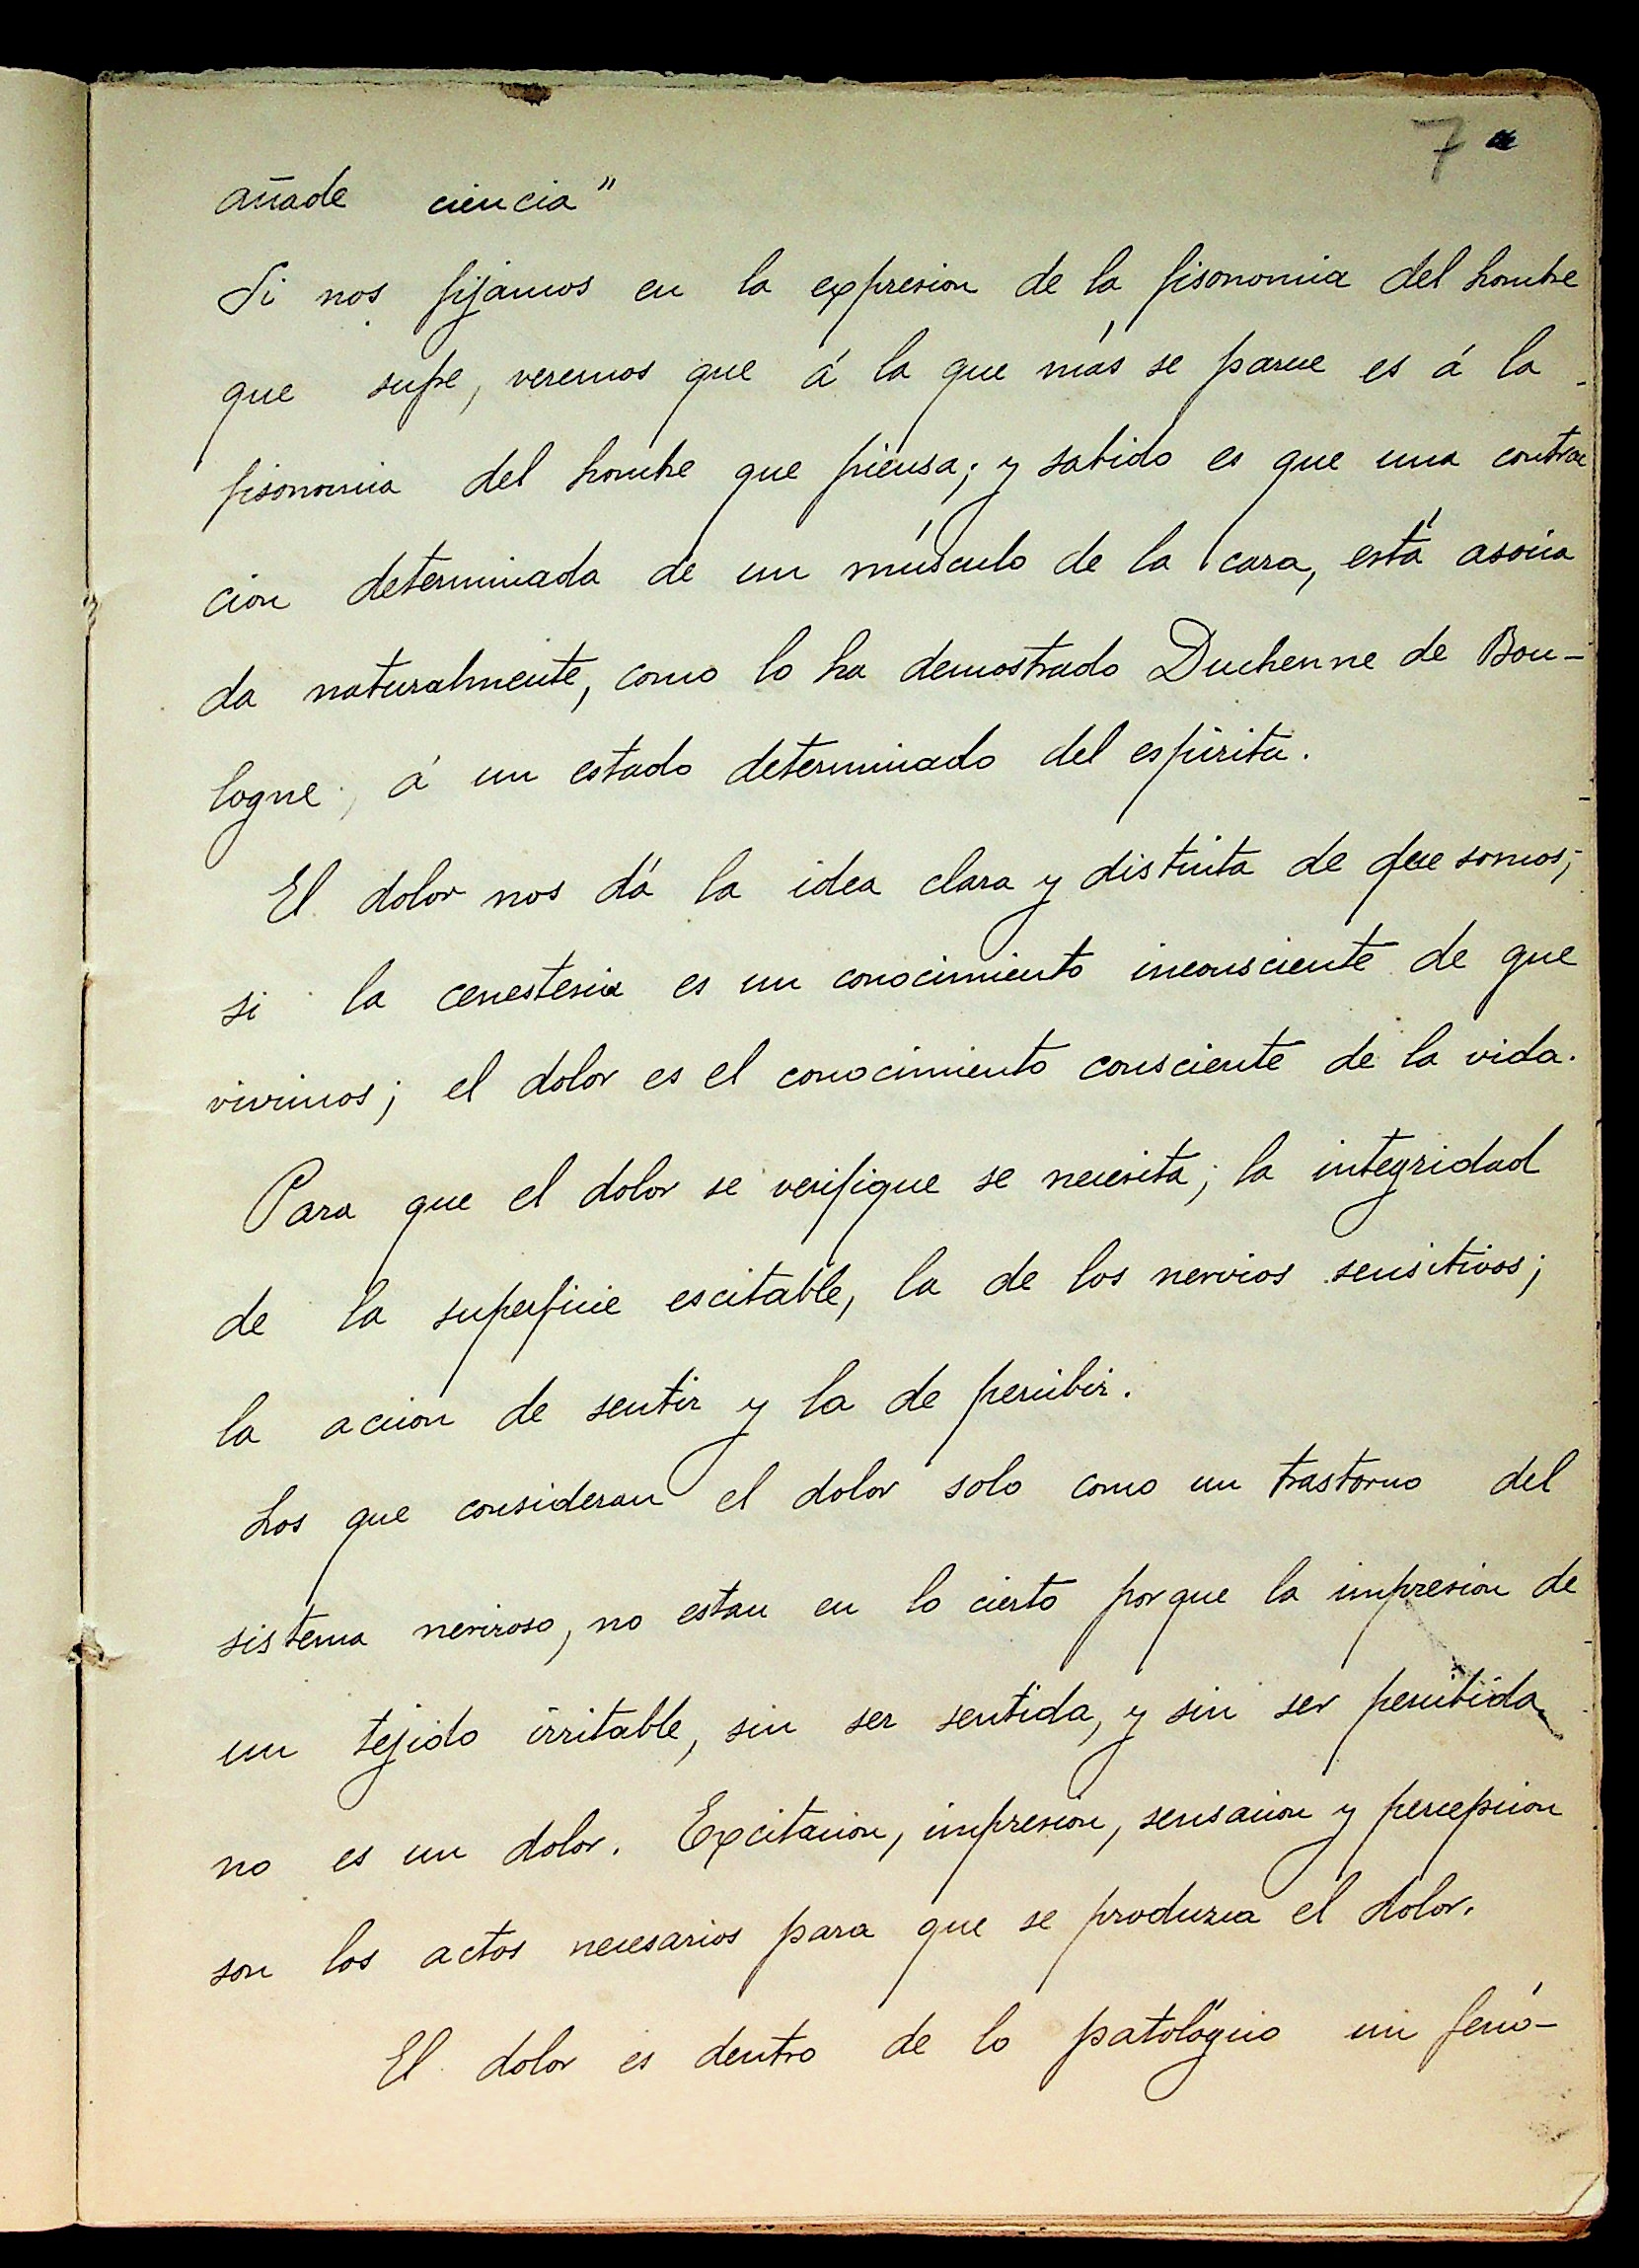 7
añade ciencia"
Si nos fijamos en la expresion de la fisonomia del hombre
que sufre, veremos que á la que más se parece es á la
fisonomia del hombre que piensa; y sabido es que una contrac
cion determinada de un músculo de la cara, está asocia
da naturalmente, como lo ha demostrado Duchenne de Bou-
logne, á un estado determinado del espiritu.
El dolor nos dá la idea clara y distinta de que somos;
si la cenestesia es un conocimiento inconsciente de que
vivimos; el dolor es el conocimiento consciente de la vida.
Para que el dolor se verifique se necesita; la integridad
de la superficie escitable, la de los nervios sensitivos;
la accion de sentir y la de percibir.
Los que consideran el dolor solo como un trastorno del
sistema nervioso, no estan en lo cierto porque la impresion de
un tejido irritable, sin ser sentida, y sin ser percibida
no es un dolor. Excitacion, impresion, sensacion y percepcion
son los actos necesarios para que se produzca el dolor.
El dolor es dentro de lo patológico un fenó-